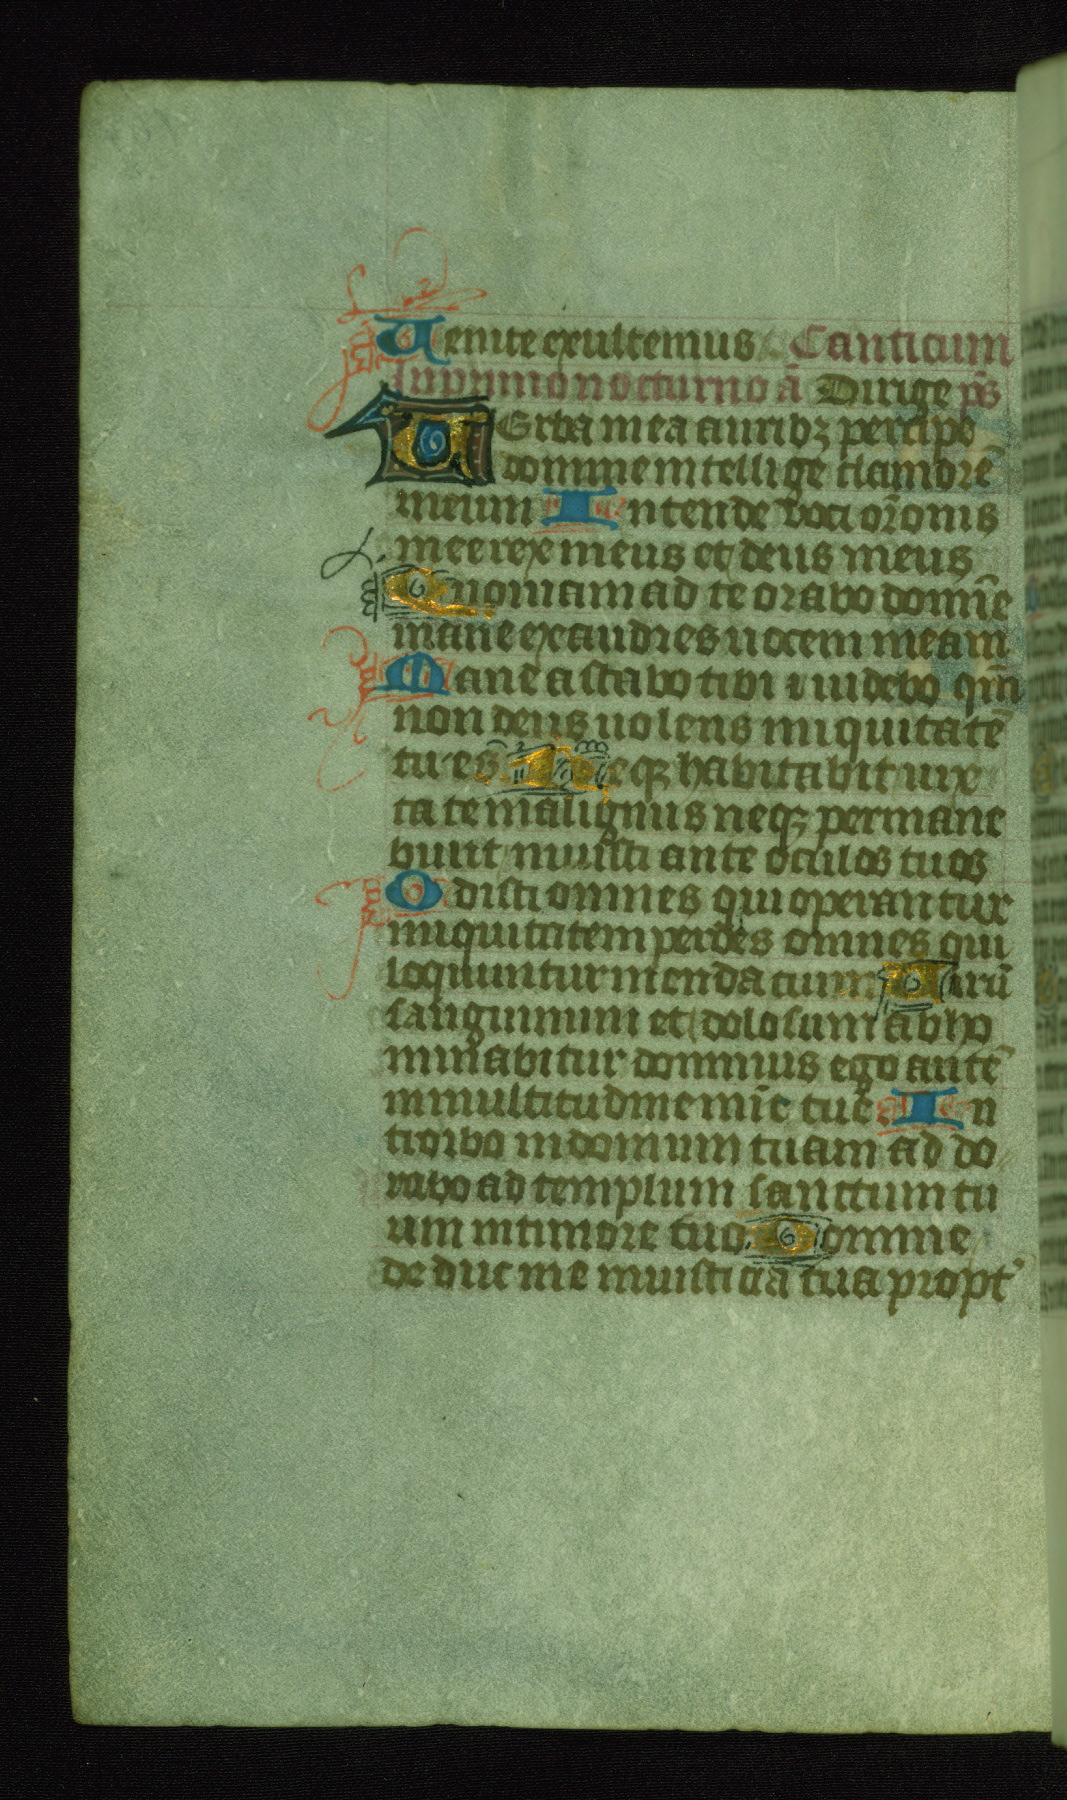 Uenite exultemus Canticum
In primo nocturno ā Dirige p̄s
UErba mea auribꝫ percipe
domine intellige clamorē
meum Intende voci or̄onis
mee rex meus et deus meus
Quoniam ad te orabo domīe
mane exaudies uocem meam
Mane astabo tibi ⁊ uidebo qm̄
non deus uolens iniquitatē
tu es Neqꝫ habitabit iux
ta te malignus neqꝫ permane
bunt iniusti ante oculos tuos
Odisti omnes qui operantur
iniquitatem perdes omnes qui
loquuntur mendacium Uirū
sanguinum et dolosum abho
minabitur dominus ego autē
inmultitudine mīe tue In
troibo indomum tuam ad do
rabo ad templum sanctum tu
um intimore tuo Domine
deduc me iniusticia tua propt᾽